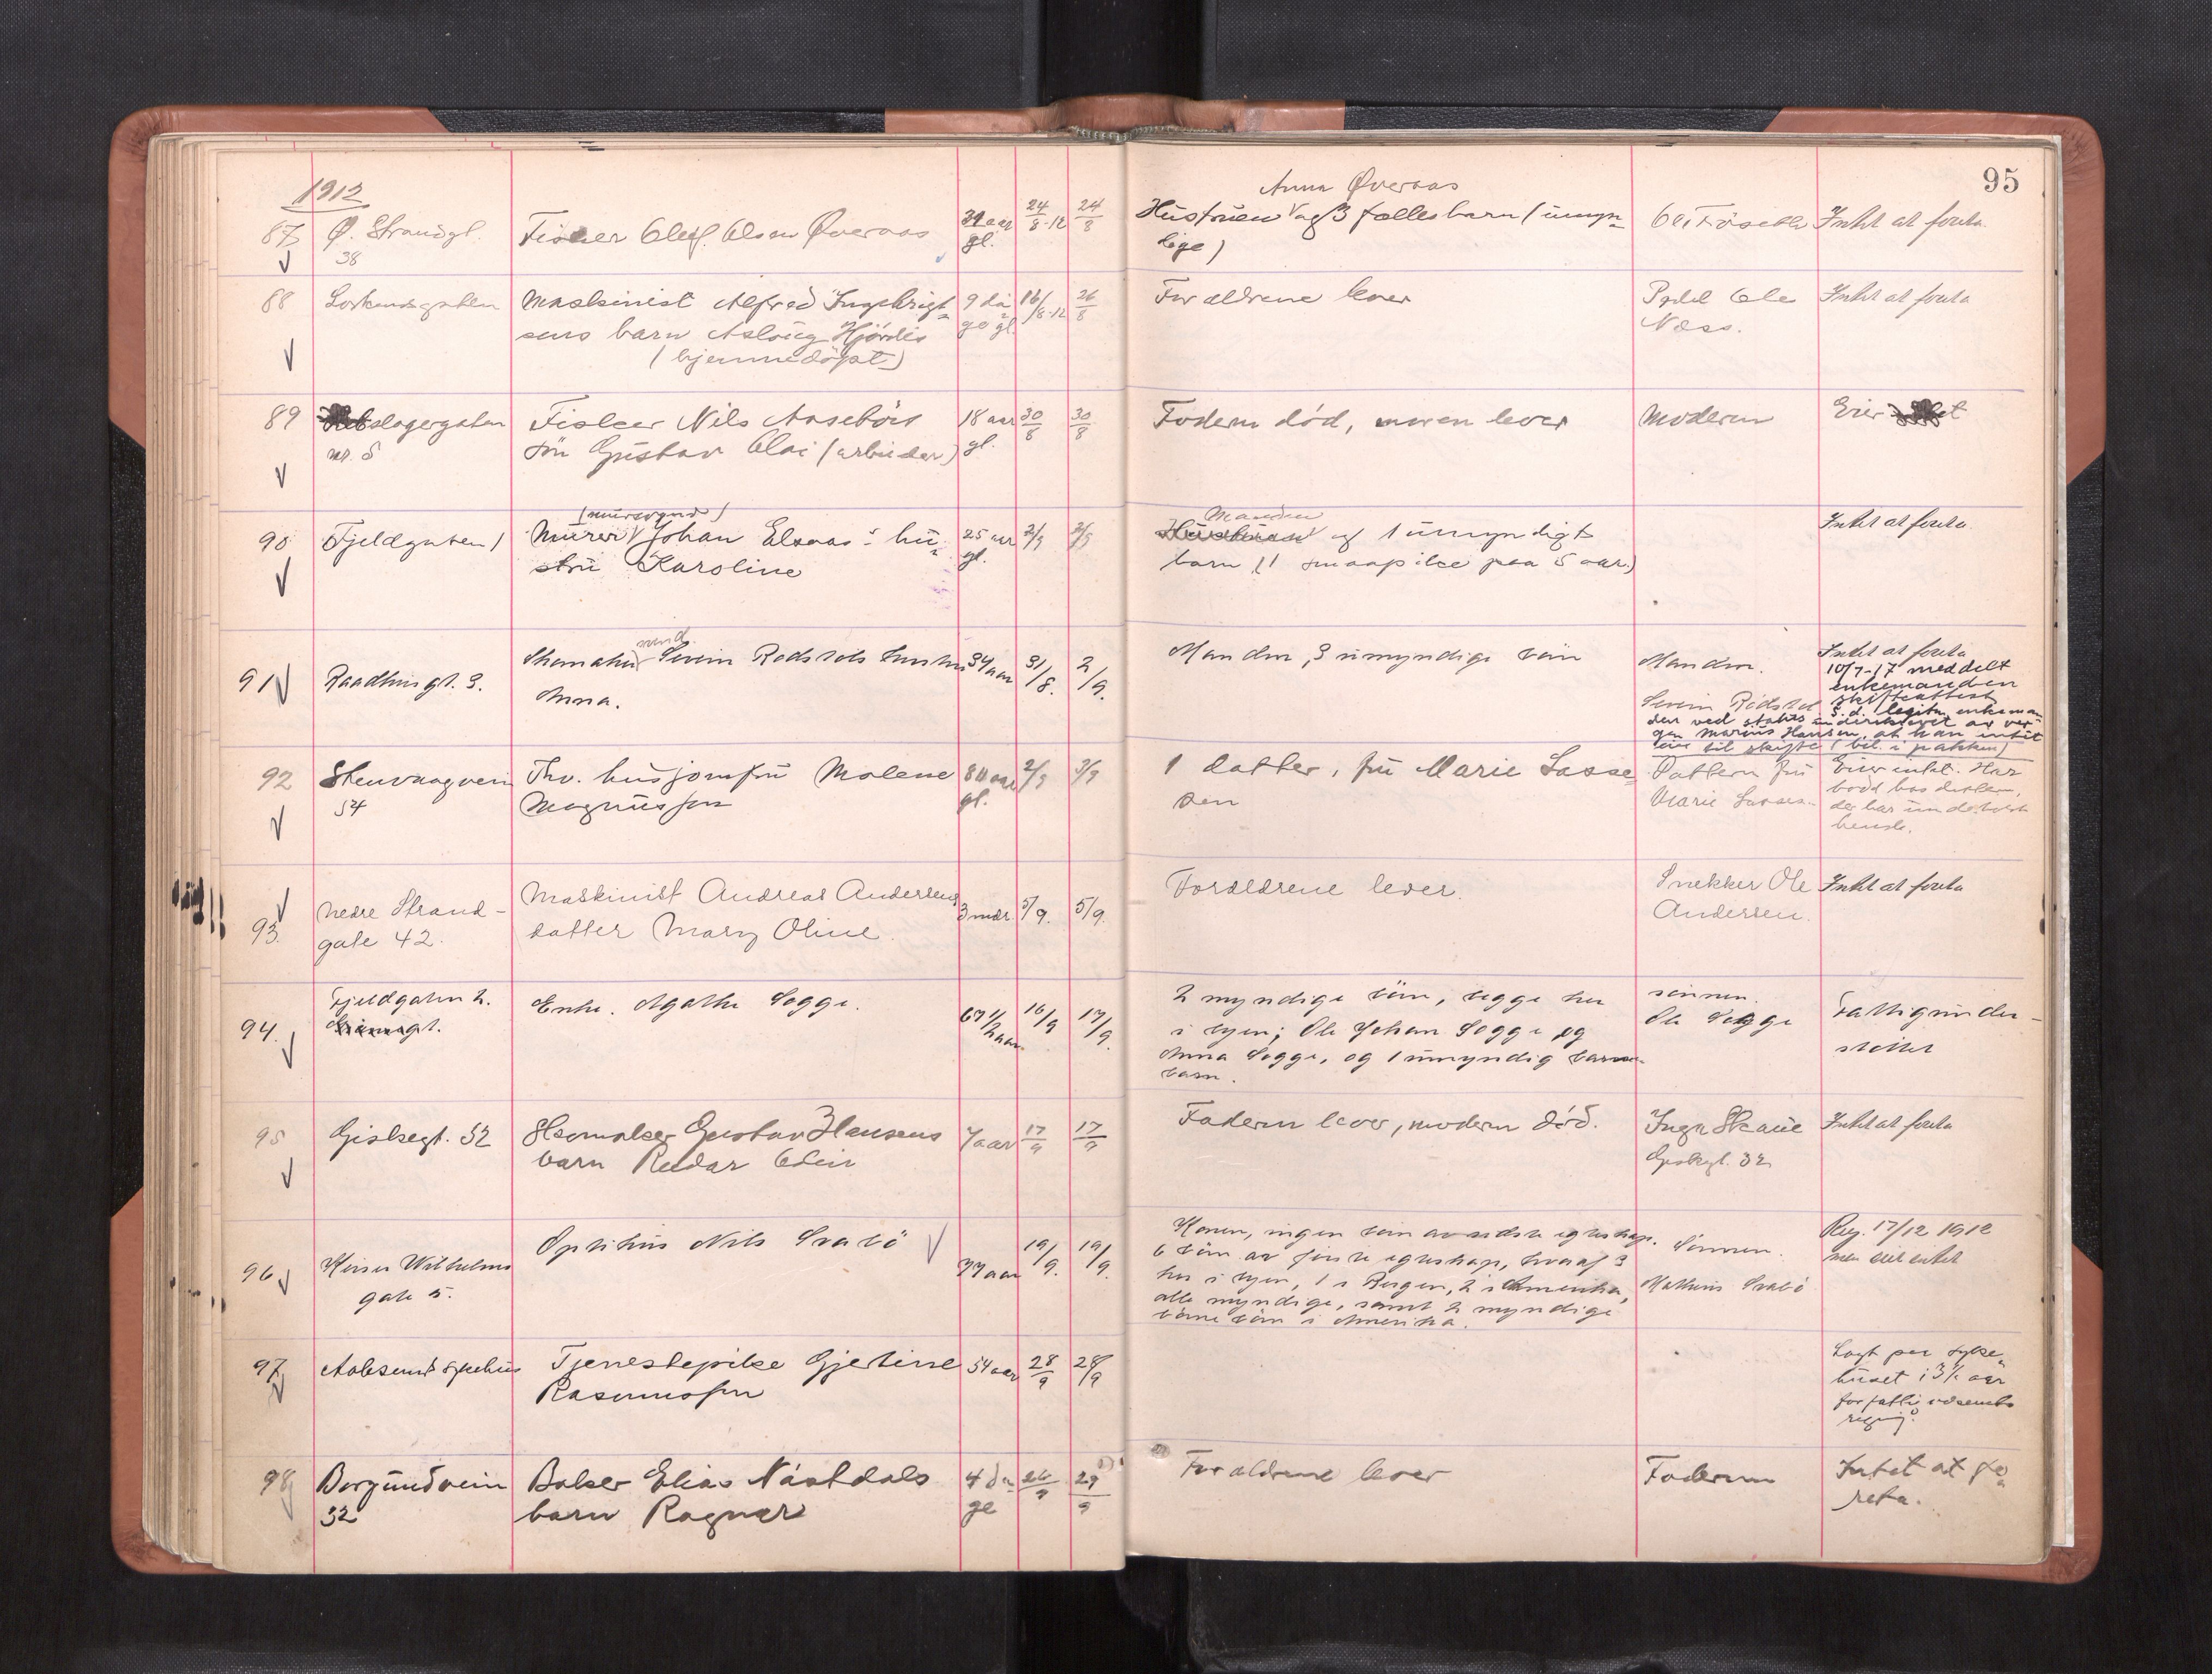 95
1912
87
Ø. Strandgt.
38
Fisker Olaf Olsen Øveraas
gl.
24/8-12
24/8
Anna Øveraas
Hustruen og 3 fælles barn (umyn-
dige)
Intet at foreta
88
Maskinist Alfred Ingebrigt-
sens barn Aslaug Hjördis
(hjemmedöpt)
9 da-
ge gl.
16/8-12
26/8
Forældrene lever
Ole
Næss.
Intet at foreta
89
slagergaten
nr. 5
Fisker Nils Aasebös
sön Gustav Olai (arbeider)
18 aar
gl.
30/8
30/8
Faderen död, moren lever
Moderen
Eier intet
90
Fjeldgaten 1
(mursvend)
Murer Johan Elsaas' hu-
stru Karoline
25 aar
gl.
2/9
Manden
Hustruen og 1 umyndigt
barn (1 smaapike paa 5 aar)
Intet at foreta
91
Raadhusgt. 3.
Severin Rødsets hustru
Anna.
34 aar
31/8.
2/9.
Manden, 3 umyndige børn
Manden.
Severin Rødset
Intet at foreta
10/7-17 meddelt
enkemanden
skifteattest
s.d. legitim. enkeman-
den ved
gen Marius Hansen, at han intet
til skifte (bil. i pakken)
92
Stenvaagveien
54
Fhv. husjomfru Malene
Magnussen
80 aar
gl.
2/9
3/9
1 datter, fru Marie Sasse-
sen
Datteren fru
Marie Sasses-
Eier intet. Har
bodd hos datteren,
der har understøttet
hende.
93.
Nedre Strand-
gate 42.
Maskinist Andreas Andersens
datter Mary Oline.
3 mdr.
5/9.
5/9.
Forældrene lever.
Snekker Ole
Andersen.
Intet at foreta
94.
Fjeldgaten 2.
Enke. Agathe Sogge.
67 1/2 aar
16/9
17/9.
2 myndige børn, begge her
i byen; Ole Johan Sogge og
Anna Sogge, og 1 umyndig barne-
barn.
sönnen.
Ole Sogge
Fattigunder-
støttet
95
Giskegt. 32
Skomaker Gustav Hansens
barn Reidar Odin
7 aar
17/9
17/9
Faderen lever, moderen död.
Inga Skaue
Giskegt. 32
Intet at foreta
96
Keiser Wilhelms
gate 5.
Optikus Nils Svabö
77 aar
19/9.
19/9.
Konen, ingen børn av sidste egteskap.
6 børn av første egteskap, hvoraf 3
her i byen, 1 i Bergen, 2 i Amerika,
alle myndige, samt 2 myndige
børnebörn i Amerika.
Sønnen.
Mathias Svabö
Reg. 17/12 1912
men eiet intet
97
Aalesunds sykehus
Tjenestepike Gjertine
Rasmussen
54 aar
28/9
28/9
Lagt paa syke-
huset i 3 1/2 aar
for
98
Borgundveien
32
Baker Elias Nåstdals
barn Ragnar
4 da-
ge
26/9
29/9
Forældrene lever
Faderen
Intet at fo-
reta.